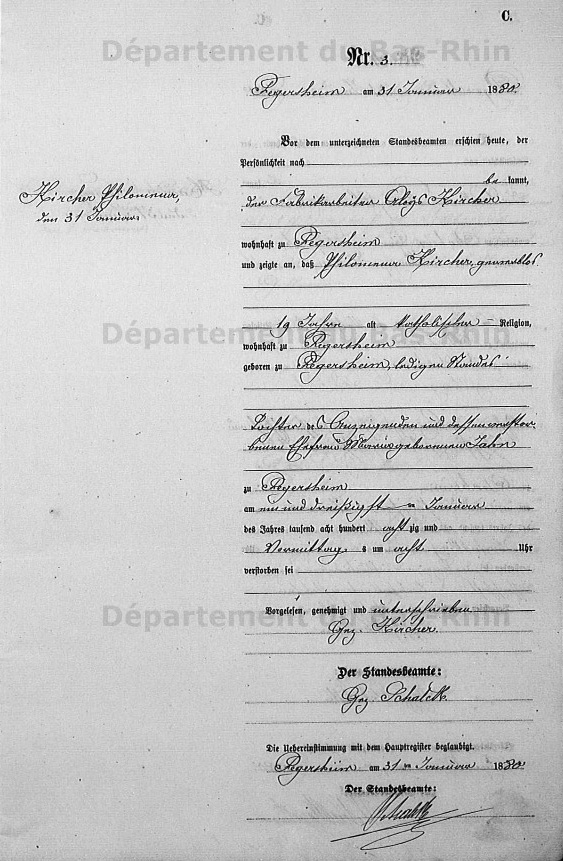 C.
Nr. 3.
Fegersheim am 31 Januar 1880.
Vor dem unterzeichneten Standesbeamten erschien heute, der
Persönlichkeit nach
be kannt,
Kircher Philomena,
den 31 Januar
der Fabrikarbeiter Aloÿs Kircher
wohnhaft zu Fegersheim
und zeigte an, daß Philomena Kircher, gewerblos
19 Jahre alt katholischer Religion,
wohnhaft zu Fegersheim
geboren zu Fegersheim, ledigen Standes
Tochter des Anzeigenden und dessen verstor-
benen Ehefrau Maria geborenen Jahn
zu Fegersheim
am ein und dreißigsten Januar
des Jahres tausend acht hundert acht zig und
Vormittag s um acht Uhr
verstorben sei
Vorgelesen, genehmigt und unterschrieben
Gez. Kircher.
Der Standesbeamte:
Gez. Schalck
Die Uebereinstimmung mit dem Hauptregister beglaubigt.
Fegersheim am 31 n Januar 1880.
Der Standesbeamte:
Schalck
Département du Bas-Rhin
Département du Bas-Rhin
Département du Bas-Rhin